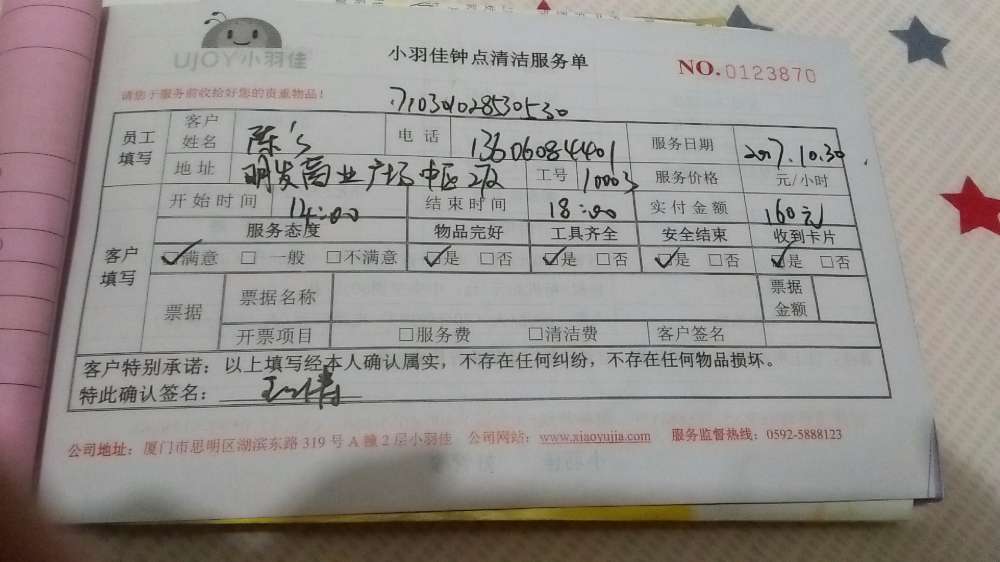 UJOY小羽佳
小羽佳钟点清洁服务单
NO.0123870
请您于服务前收拾好您的贵重物品!
71030102853053​0
员工填写 客户姓名 陈's 电话 13606084401 服务日期 2017.10.30
地址 明发商业广场中区 工号 10003 服务价格 元/小时
客户填写 开始时间 14:00 结束时间 18:00 实付金额 160元
服务态度 物品完好 工具齐全 安全结束 收到卡片
☑满意 □一般 □不满意 ☑是 □否 ☑是 □否 ☑是 □否 ☑是 □否
票据 票据名称 票据金额
开票项目 □服务费 □清洁费 客户签名
客户特别承诺：以上填写经本人确认属实，不存在任何纠纷，不存在任何物品损坏。
特此确认签名：
公司地址：厦门市思明区湖滨东路319号A幢2层小羽佳 公司网站：www.xiaoyujia.com 服务监督热线：0592-5888123